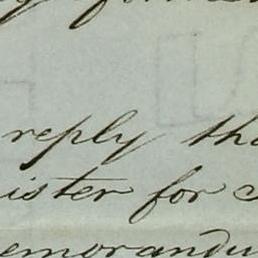 reply tha
ister for
emorandu